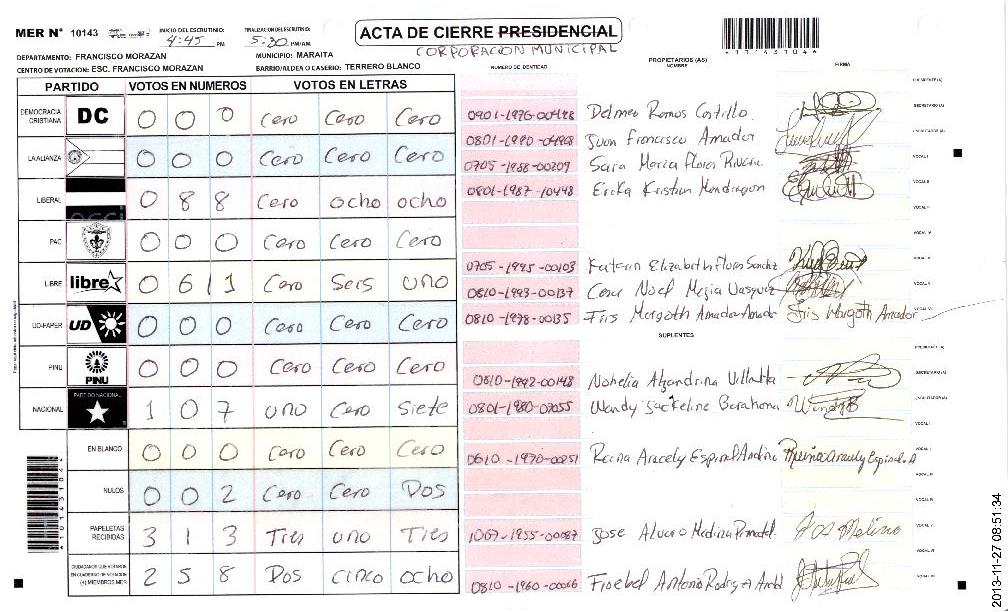 MER Nº 10143
INICIO DEL ESCRUTINIO:
4:45 PM
FINALIZACION DEL ESCRUTINIO:
5:30 PM/AM
ACTA DE CIERRE PRESIDENCIAL
CORPORACION MUNICIPAL
DEPARTAMENTO: FRANCISCO MORAZAN
MUNICIPIO: MARAITA
CENTRO DE VOTACION: ESC. FRANCISCO MORAZAN
BARRIO/ALDEA O CASERIO: TERRERO BLANCO
PARTIDO VOTOS EN NUMEROS VOTOS EN LETRAS
DEMOCRACIA CRISTIANA DC 0 0 0 Cero Cero Cero
LA ALIANZA 0 0 0 Cero Cero Cero
LIBERAL 0 8 8 Cero ocho ocho
PAC 0 0 0 Cero Cero Cero
LIBRE libre 0 6 1 Cero Seis uno
UD-FAPER UD 0 0 0 Cero Cero Cero
PINU PINU 0 0 0 Cero Cero Cero
NACIONAL PARTIDO NACIONAL 1 0 7 uno Cero Siete
EN BLANCO 0 0 0 Cero Cero Cero
NULOS 0 0 2 Cero Cero Dos
PAPELETAS RECIBIDAS 3 1 3 Tres uno Tres
CIUDADANOS QUE VOTARON EN CUADERNO DE VOTACION (+) MIEMBROS MER 2 5 8 Dos cinco ocho
NUMERO DE IDENTIDAD
PROPIETARIOS (AS)
NOMBRE
FIRMA
PRESIDENTE(A)
0901-1976-00498 Delmeo Ramos Castillo SECRETARIO(A)
0801-1990-04908 Juan Francisco Amador ESCRUTADOR(A)
0705-1988-00209 Sara Maria Flores Rivera VOCAL I
0801-1987-10448 Ericka Kristian Mondragon VOCAL II
0705-1995-00103 Katerin Elizabeth Flores Sanchez
0810-1993-00137 Cesar Noel Mejia Vasquez
0810-1978-00135 Iris Margoth Amador Amador Iris Margoth Amador
SUPLENTES
PRESIDENTE(A)
0810-1992-00148 Nohelia Alejandrina Villalta SECRETARIO(A)
0801-1980-07055 Wendy Jackeline Barahona Wendy B ESCRUTADOR(A)
VOCAL I
0610-1970-00851 Reina Aracely Espinal Andino Reina Aracely Espinal A
1007-1955-00087 Jose Alvaro Medina Jos Medina
0810-1960-00066 Froebel Antonio Rodriguez
2013-11-27 08:51:34